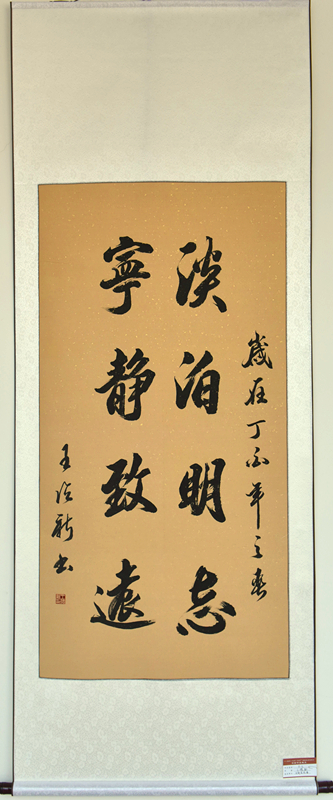 歲在丁酉年之春
淡泊明志
寧靜致遠
王新書